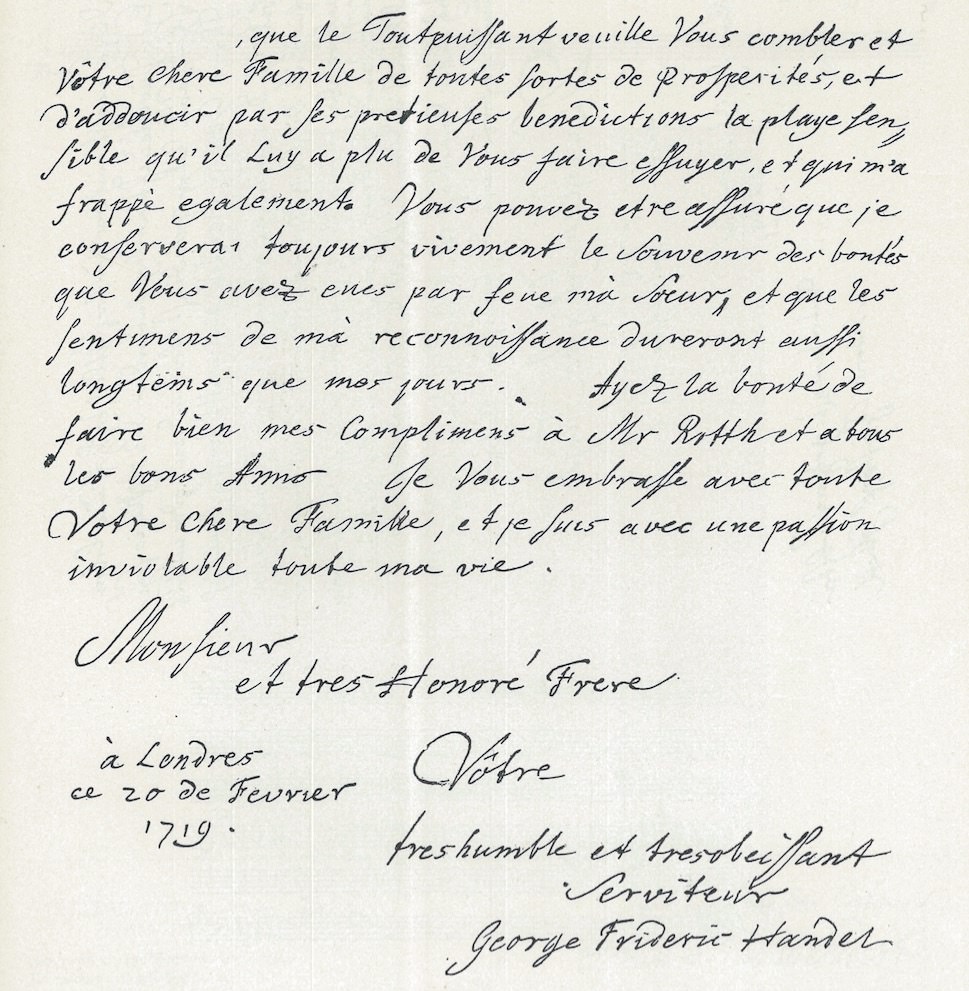 , que le Toutpuissant veuille Vous combler et
Vôtre Chere Famille de toutes sortes de Prosperités, et
d'addoucir par ses pretieuses benedictions la playe sen,,
sible qu'il Luy a plu de Vous faire essuyer, et qui m'a
frappè egalement. Vous pouvez etre assuré que je
conserverai toujours vivement le Souvenir des bontés
que Vous avez eues par feue mà Sœur, et que les
sentimens de mà reconnoissance dureront aussi
longtems que mes jours. Ayez la bonté de
faire bien mes Complimens à Mr Rotth et a tous
les bons Amis Je Vous embrasse avec toute
Votre Chere Famille, et je suis avec une passion
inviolable toute ma vie.
Monsieur
et tres Honoré Frere
à Londres
ce 20 de Fevrier
1719.
Vôtre
treshumble et tresobeissant
Serviteur
George Frideric Handel